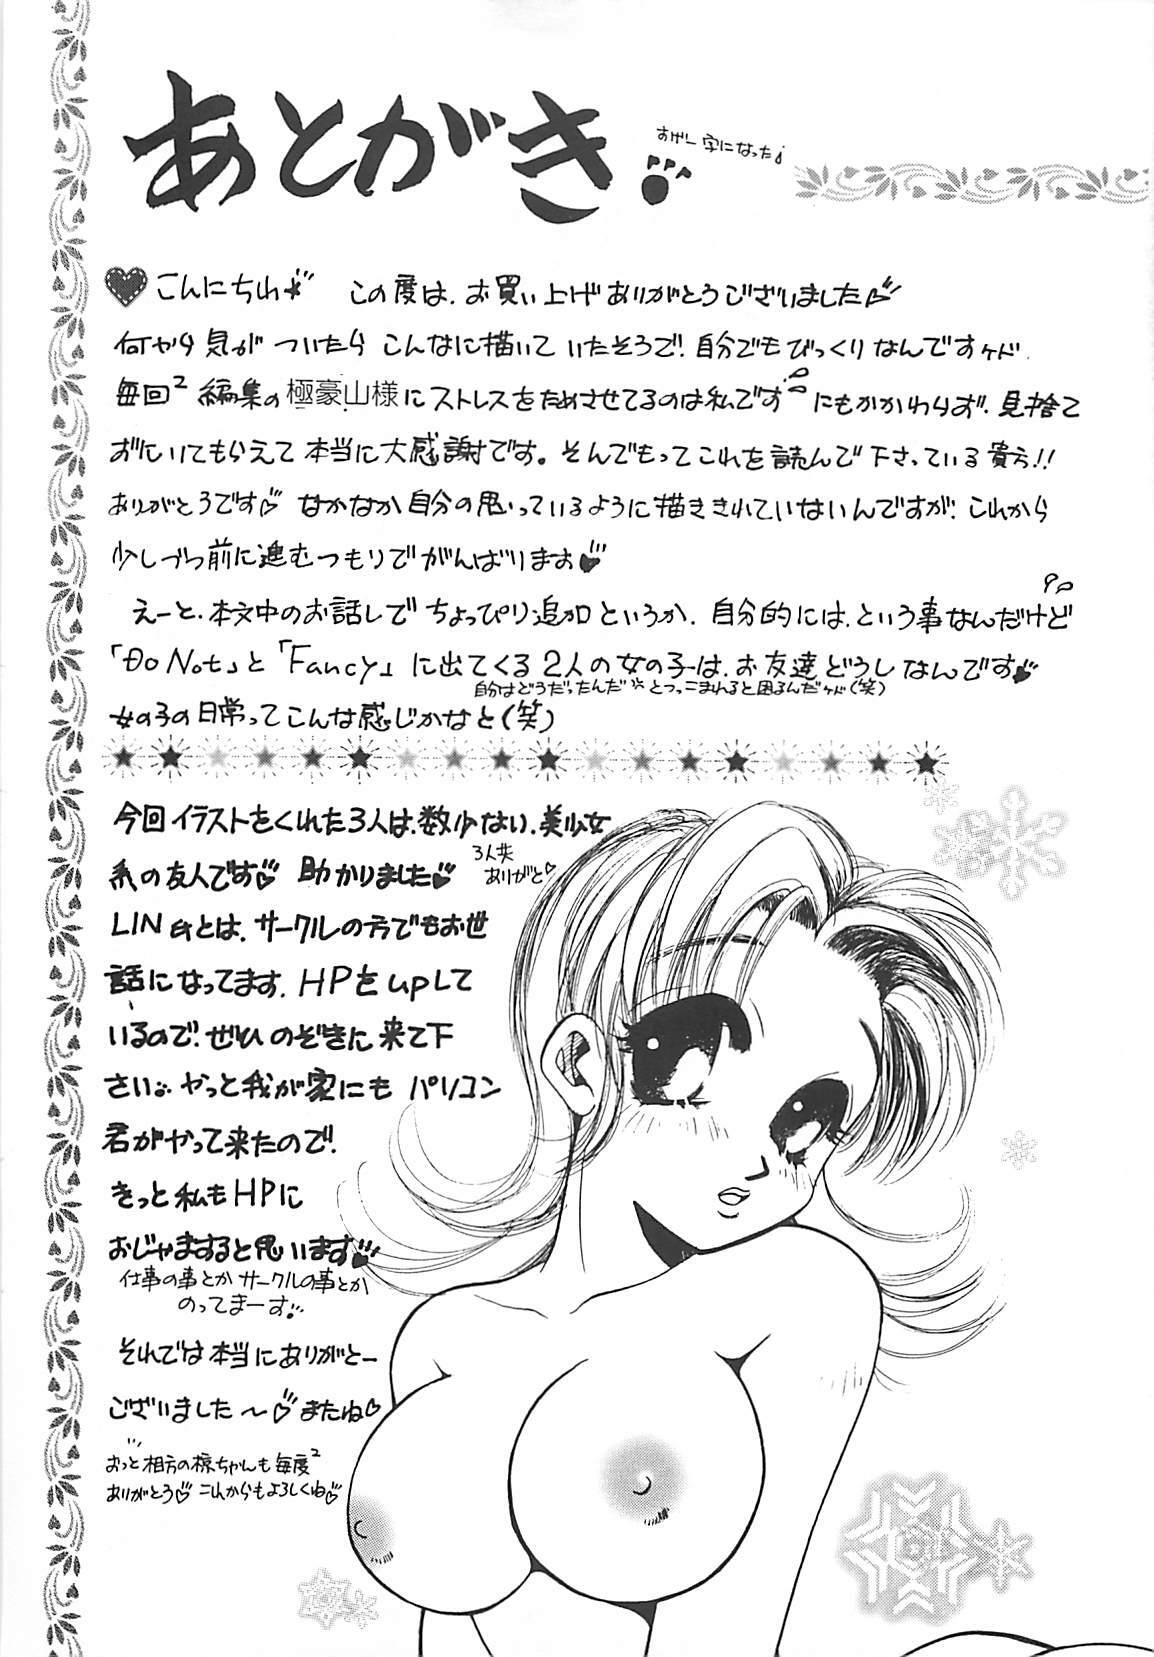 あとがき!
すげー字になった♪
♥こんにちわ☆ この度は、お買い上げありがとうございました♡
何やら気がついたらこんなに描いていたそうで!自分でもびっくりなんですケド
毎回²編集の極豪山様にストレスをためさせてるのは私です にもかかわらず、見捨て
ずにいてもらえて本当に大感謝です。そんでもってこれを読んで下さっている貴方!!
ありがとうです♡ なかなか自分の思っているように描ききれていないんですが!これから
少しづつ前に進むつもりでがんばりまする♥
えーと、本文中のお話しでちょっぴり追加というか、自分的には、という事なんだけど
「Do Not」と「Fancy」に出てくる2人の女の子は、お友達どうしなんです♥
自分はどうだったんだ とつっこまれると困るんだケド(笑)
女の子の日常ってこんな感じかなと(笑)
今回イラストをくれた3人は、数少ない、美少女
系の友人です♡ 助かりました♡ 3人共
ありがと♡
LIN氏とは、サークルの方でもお世
話になってます、HPをupして
いるので!ぜひのぞきに来て下
さい。やっと我が家にもパソコン
君がやって来たので!
きっと私もHPに
おじゃますると思います♥
仕事の事とかサークルの事とか
のってまーす
それでは本当にありがとー
ございました〜♡またね♡
おっと相方の椋ちゃんも毎度²
ありがとう♡これからもよろしくね♡